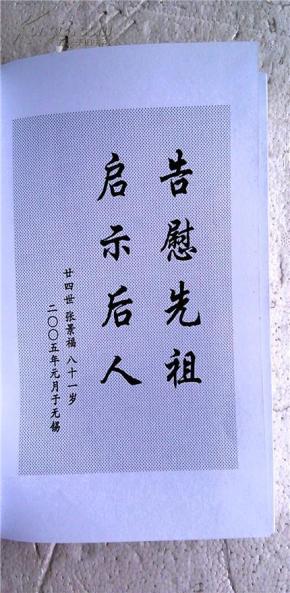 告慰先祖
启示后人
廿四世 张景福 八十一岁
二〇〇五年元月于无锡